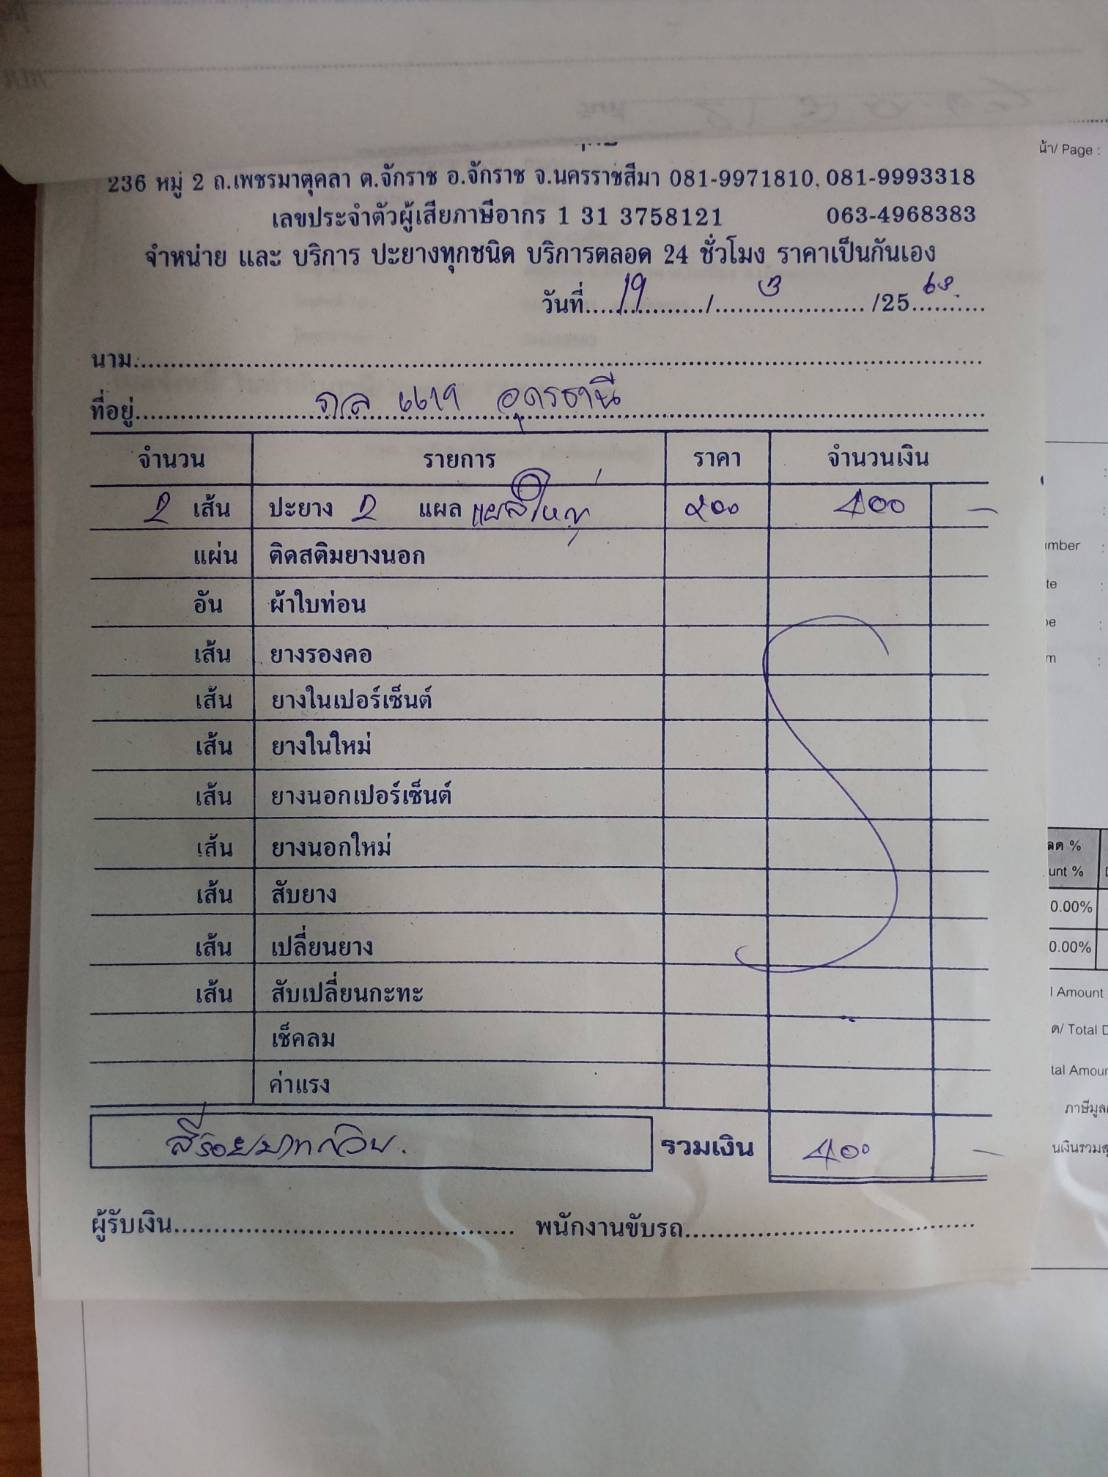 236 หมู่ 2 ถ.เพชรมาตุคลา ต.จักราช อ.จักราช จ.นครราชสีมา 081-9971810, 081-9993318
เลขประจำตัวผู้เสียภาษีอากร 1 31 3758121 063-4968383
จำหน่าย และ บริการ ปะยางทุกชนิด บริการตลอด 24 ชั่วโมง ราคาเป็นกันเอง
วันที่ 19 / 3 /25 68
นาม
ที่อยู่ อุดรธานี
จำนวน รายการ ราคา จำนวนเงิน
2 เส้น ปะยาง 2 แผล แผลใหญ่ 200 400 -
แผ่น ติดสติมยางนอก
อัน ผ้าใบท่อน
เส้น ยางรองคอ
เส้น ยางในเปอร์เซ็นต์
เส้น ยางในใหม่
เส้น ยางนอกเปอร์เซ็นต์
เส้น ยางนอกใหม่
เส้น สับยาง
เส้น เปลี่ยนยาง
เส้น สับเปลี่ยนกะทะ
เช็คลม
ค่าแรง
สี่ร้อยบาทถ้วน. รวมเงิน 400 -
ผู้รับเงิน พนักงานขับรถ
น้า/ Page :
mber :
te :
pe :
m :
ลด %
unt %
0.00%
0.00%
l Amount
ด/ Total D
tal Amoun
ภาษีมูลค
นเงินรวมสุ